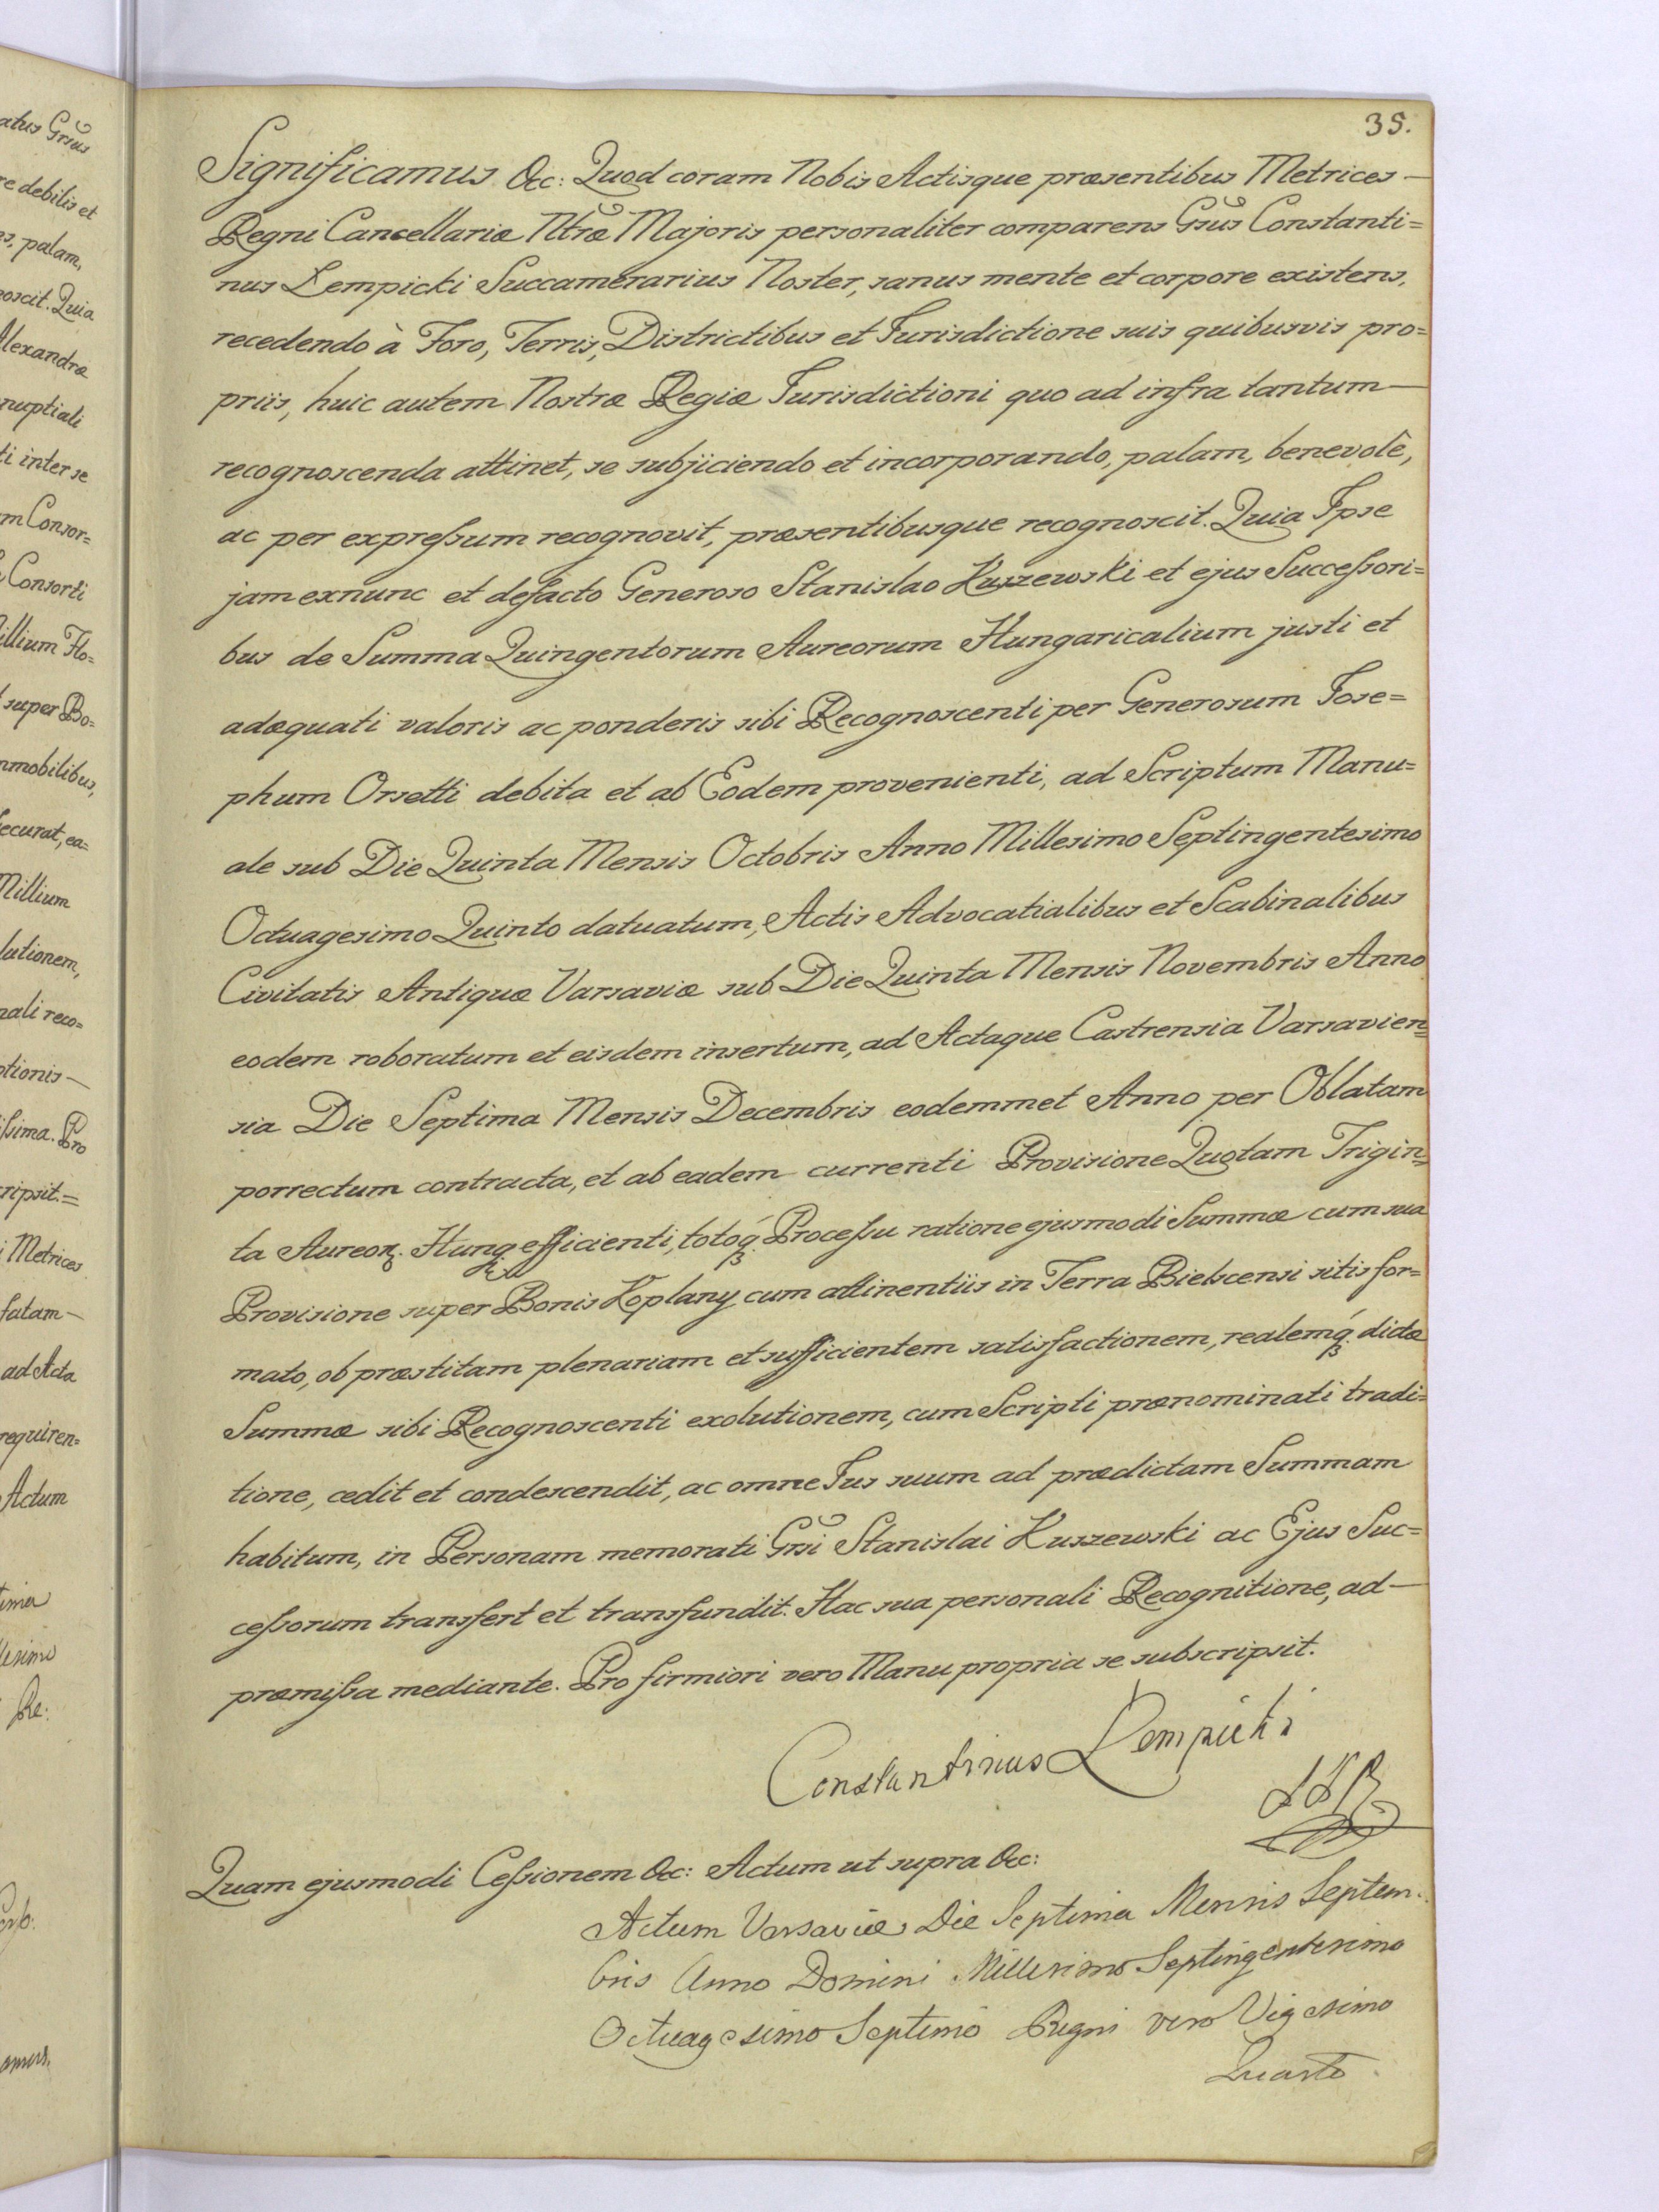 35.
Significamus &c: Quod coram Nobis Actisque præsentibus Metrices —
Regni Cancellariæ Ntræ Majoris personaliter comparens Gsus Constanti=
nus Łempicki Succamerarius Noster, sanus mente et corpore existens,
recedendo à Foro, Terris, Districtibus et Jurisdictione suis quibusvis pro=
priis, huic autem Nostræ Regiæ Jurisdictioni quo ad infra tantum —
recognoscenda attinet, se subjiciendo et incorporando, palam, benevolè,
ac per expreſsum recognovit, præsentibusque recognoscit. Quia Ipse
jam exnunc et defacto Generoso Stanislao Kuszewski et ejus Succeſsori=
bus de Summa Quingentorum Aureorum Hungaricalium justi et
adæquati valoris ac ponderis sibi Recognoscenti per Generosum Jose=
phum Orsetti debita et ab Eodem provenienti, ad Scriptum Manu=
ale sub Die Quinta Mensis Octobris Anno Millesimo Septingentesimo
Octuagesimo Quinto datuatum, Actis Advocatialibus et Scabinalibus
Civitatis Antiquæ Varsaviæ sub Die Quinta Mensis Novembris Anno
eodem roboratum et eisdem insertum, ad Actaque Castrensia Varsavien=
sia Die Septima Mensis Decembris eodemmet Anno per Oblatam
porrectum contracta, et ab eadem currenti Provisione Quotam Trigin=
ta Aureor. Hung. efficienti, totoq́. Proceſsu ratione ejusmodi Summæ cum sua
Provisione super Bonis Koplany cum attinentiis in Terra Bielscensi sitis for=
mato, ob præstitam plenariam et sufficientem satisfactionem, realemq́. dictæ
Summæ sibi Recognoscenti exolutionem, cum Scripti prænominati tradi=
tione, cedit et condescendit, ac omne Jus suum ad prædictam Summam
habitum, in Personam memorati Grsi Stanislai Kuszewski ac Ejus Suc=
ceſsorum transfert et transfundit. Hac sua personali Recognitione, ad —
præmiſsa mediante. Pro firmiori vero Manu propria se subscripsit.
Constantinus Łempicki
Quam ejusmodi Ceſsionem &c: Actum ut supra &c:
Actum Varsaviæ Die Septima Mensis Septem=
bris Anno Domini Millesimo Septingentesimo
Octuagesimo Septimo Regni vero Vigesimo
Quarto.